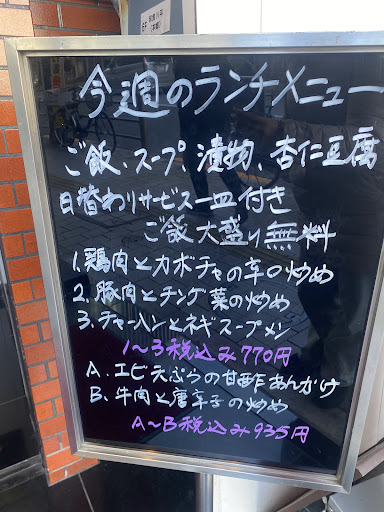 今週のランチメニュー
ご飯、スープ 漬物、杏仁豆腐
日替わりサービス一皿付き
ご飯大盛り無料
1.鶏肉とカボチャの辛口炒め
2.豚肉とチンゲン菜の炒め
3.チャーハンとネギスープメン
1〜3税込み770円
A.エビ天ぷらの甘酢あんかけ
B.牛肉と唐辛子の炒め
A〜B税込み935円